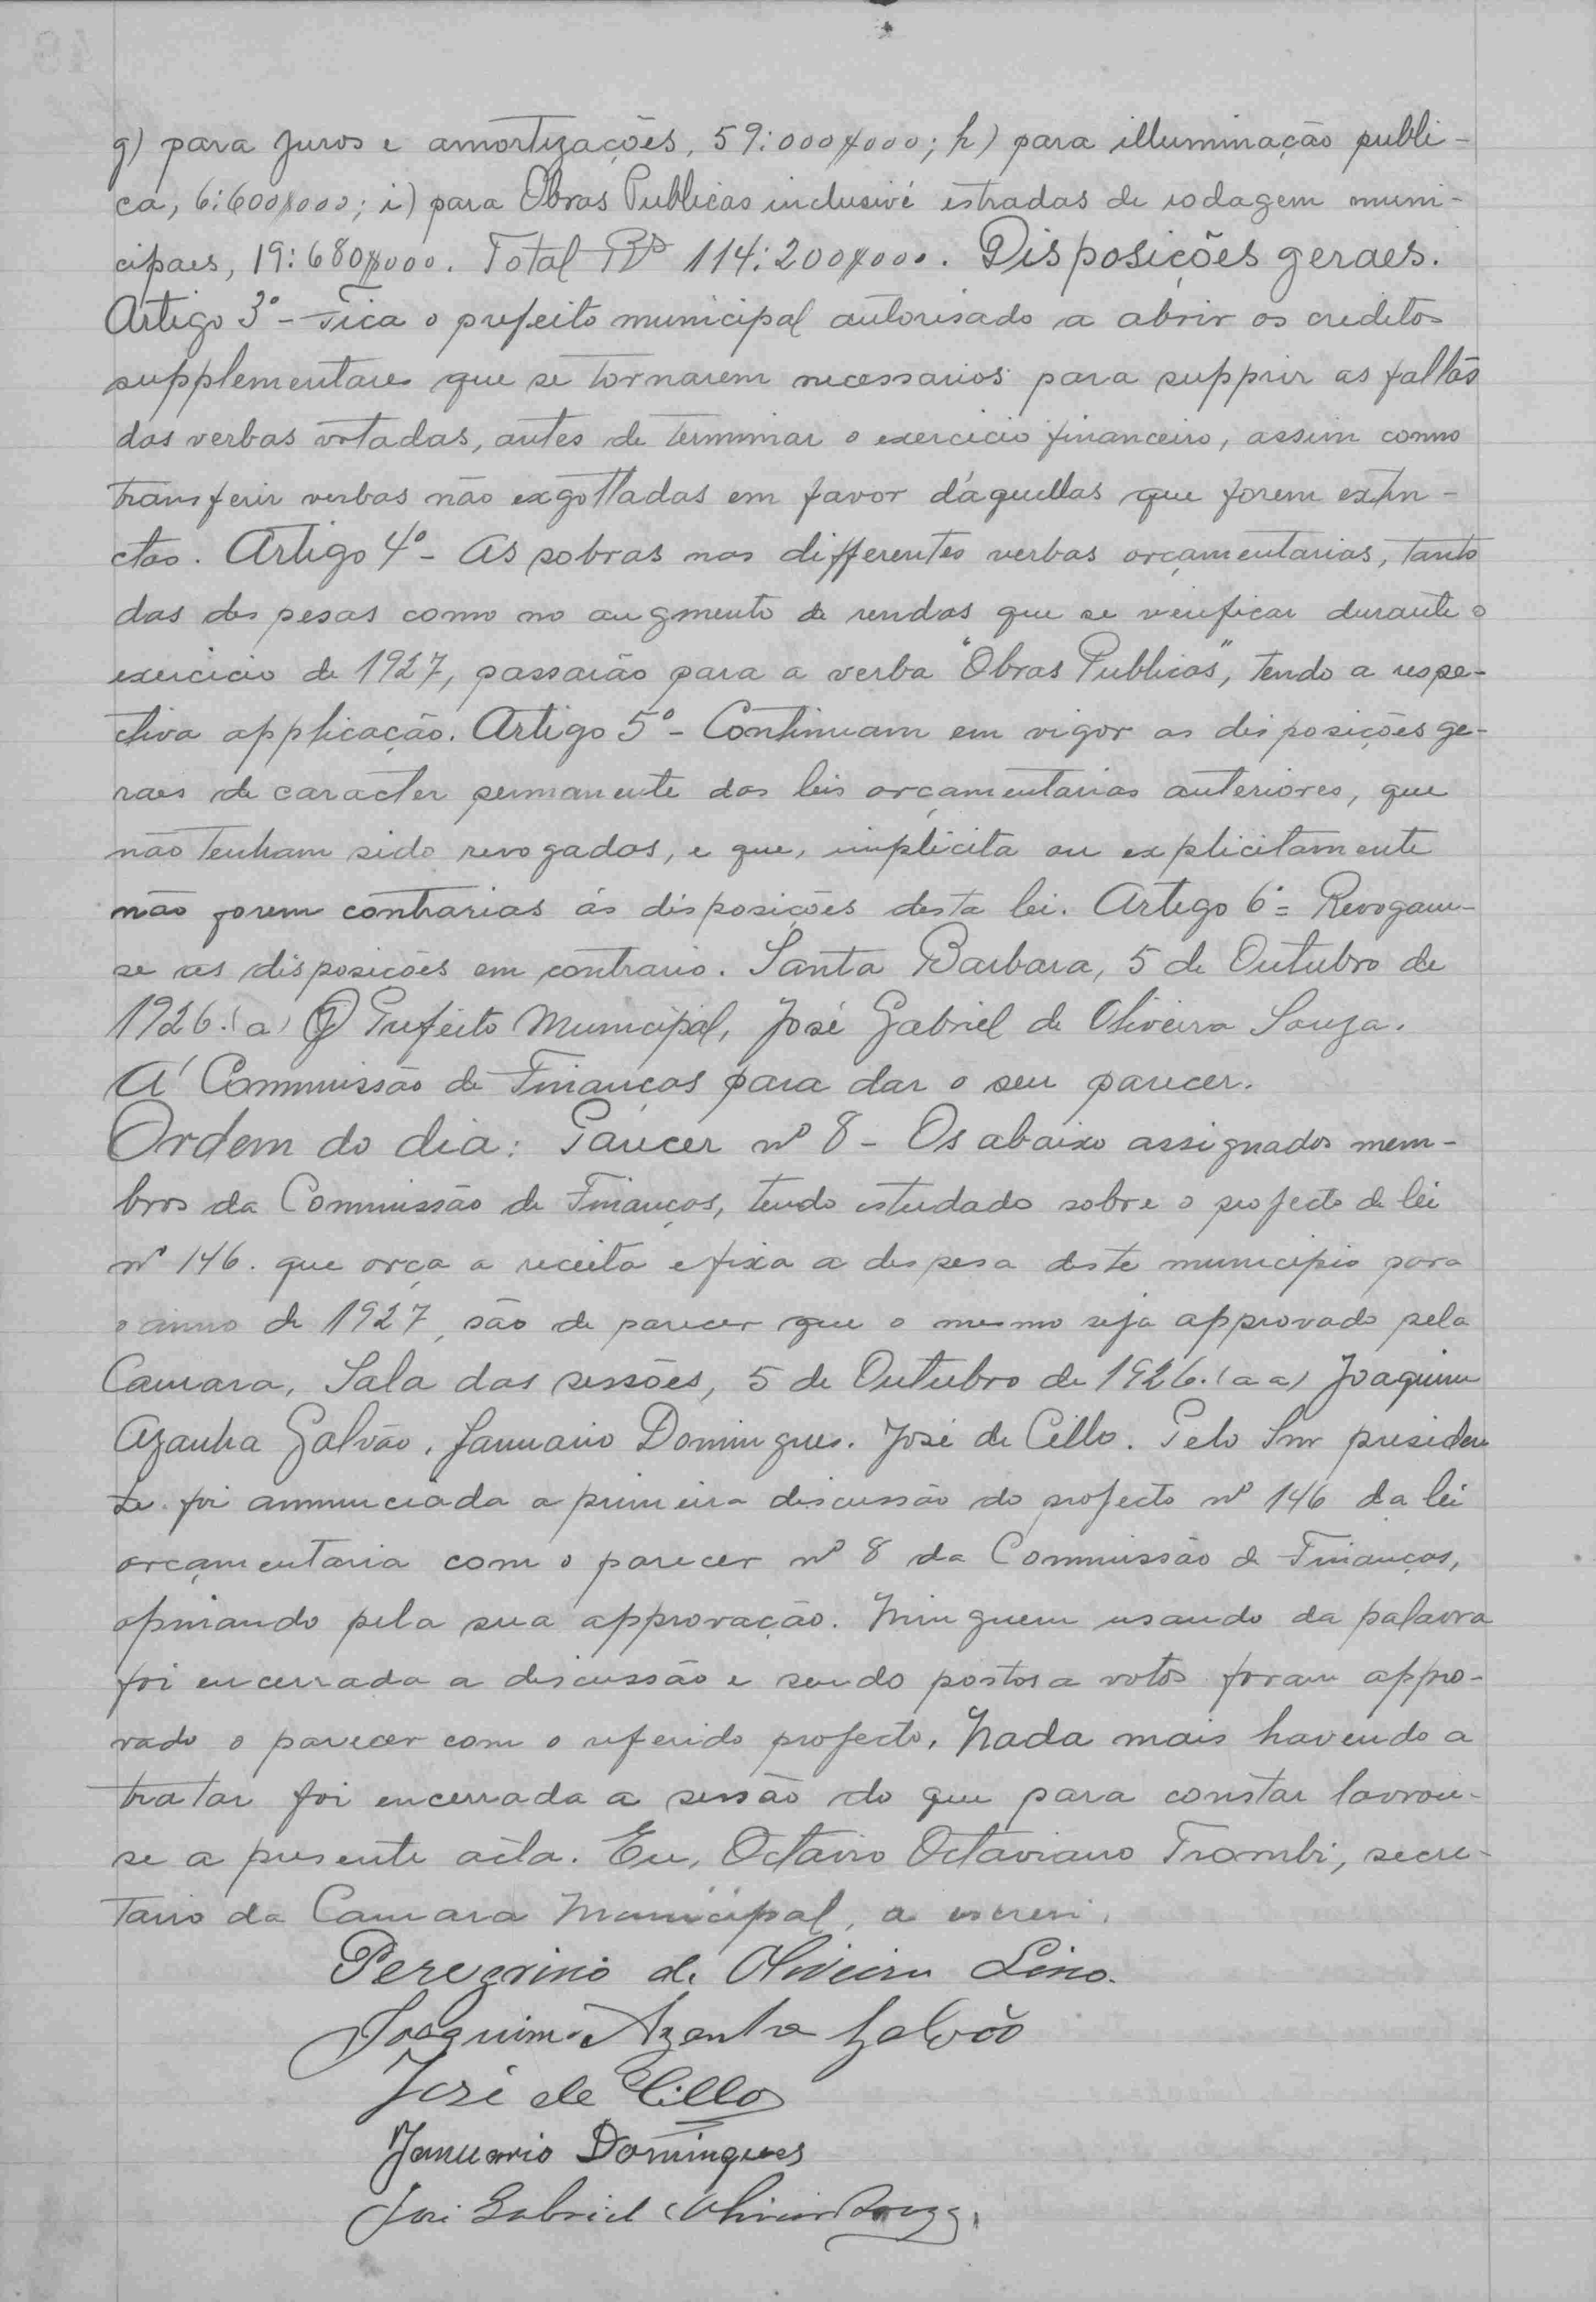 g) para juros e amortizações, 59:000$000; h) para illuminação publi-
ca, 6:600$000; i) para Obras Publicas inclusivé estradas de rodagem muni-
cipaes, 19:680$000. Total Rs 114:200$000. Disposições geraes.
Artigo 3º - Fica o prefeito municipal autorisado a abrir os creditos
supplementares que se tornarem necessarios para supprir as faltas
das verbas votadas, antes de terminar o exercicio financeiro, assim como
transferir verbas não exgottadas em favor d'aquellas que forem extin-
ctas. Artigo 4º - As sobras nas differentes verbas orçamentarias, tanto
das despesas como no augmento de rendas que se verificar durante o
exercicio de 1927, passarão para a verba "Obras Publicas", tendo a respe-
ctiva applicação. Artigo 5º - Continuam em vigor as disposições ge-
raes de caracter permanente das leis orçamentarias anteriores, que
não tenham sido revogadas, e que, implicita ou explicitamente
não forem contrarias ás disposições desta lei. Artigo 6º = Revogam-
se as disposições em contrario. Santa Barbara, 5 de Outubro de
1926. (a) O Prefeito Municipal, José Gabriel de Oliveira Souza.
A' Commissão de Finanças para dar o seu parecer.
Ordem do dia: Parecer nº 8 - Os abaixo assignados mem-
bros da Commissão de Finanças, tendo estudado sobre o projecto de lei
nº 146. que orça a receita e fixa a despesa deste municipio para
o anno de 1927, são de parecer que o mesmo seja approvado pela
Camara, Sala das sessões, 5 de Outubro de 1926. (a a) Joaquim
Azanha Galvão, Januario Domingues. José de Cillo. Pelo Snr presiden
te foi annunciada a primeira discussão do projecto nº 146 da lei
orçamentaria com o parecer nº 8 da Commissão de Finanças,
opinando pela sua approvação. Ninguem usando da palavra
foi encerrada a discussão e sendo postos a votos foram appro-
vado o parecer com o referido projecto. Nada mais havendo a
tratar foi encerrada a sessão do que para constar lavrou-
se a presente acta. Eu, Octavio Octaviano Trombi, secre-
tario da Camara Municipal, a escrevi.
Peregrino de Oliveira Lino.
Joaquim Azanha Galvão
José de Cillo
Januario Domingues
José Gabriel Oliveira Souza.